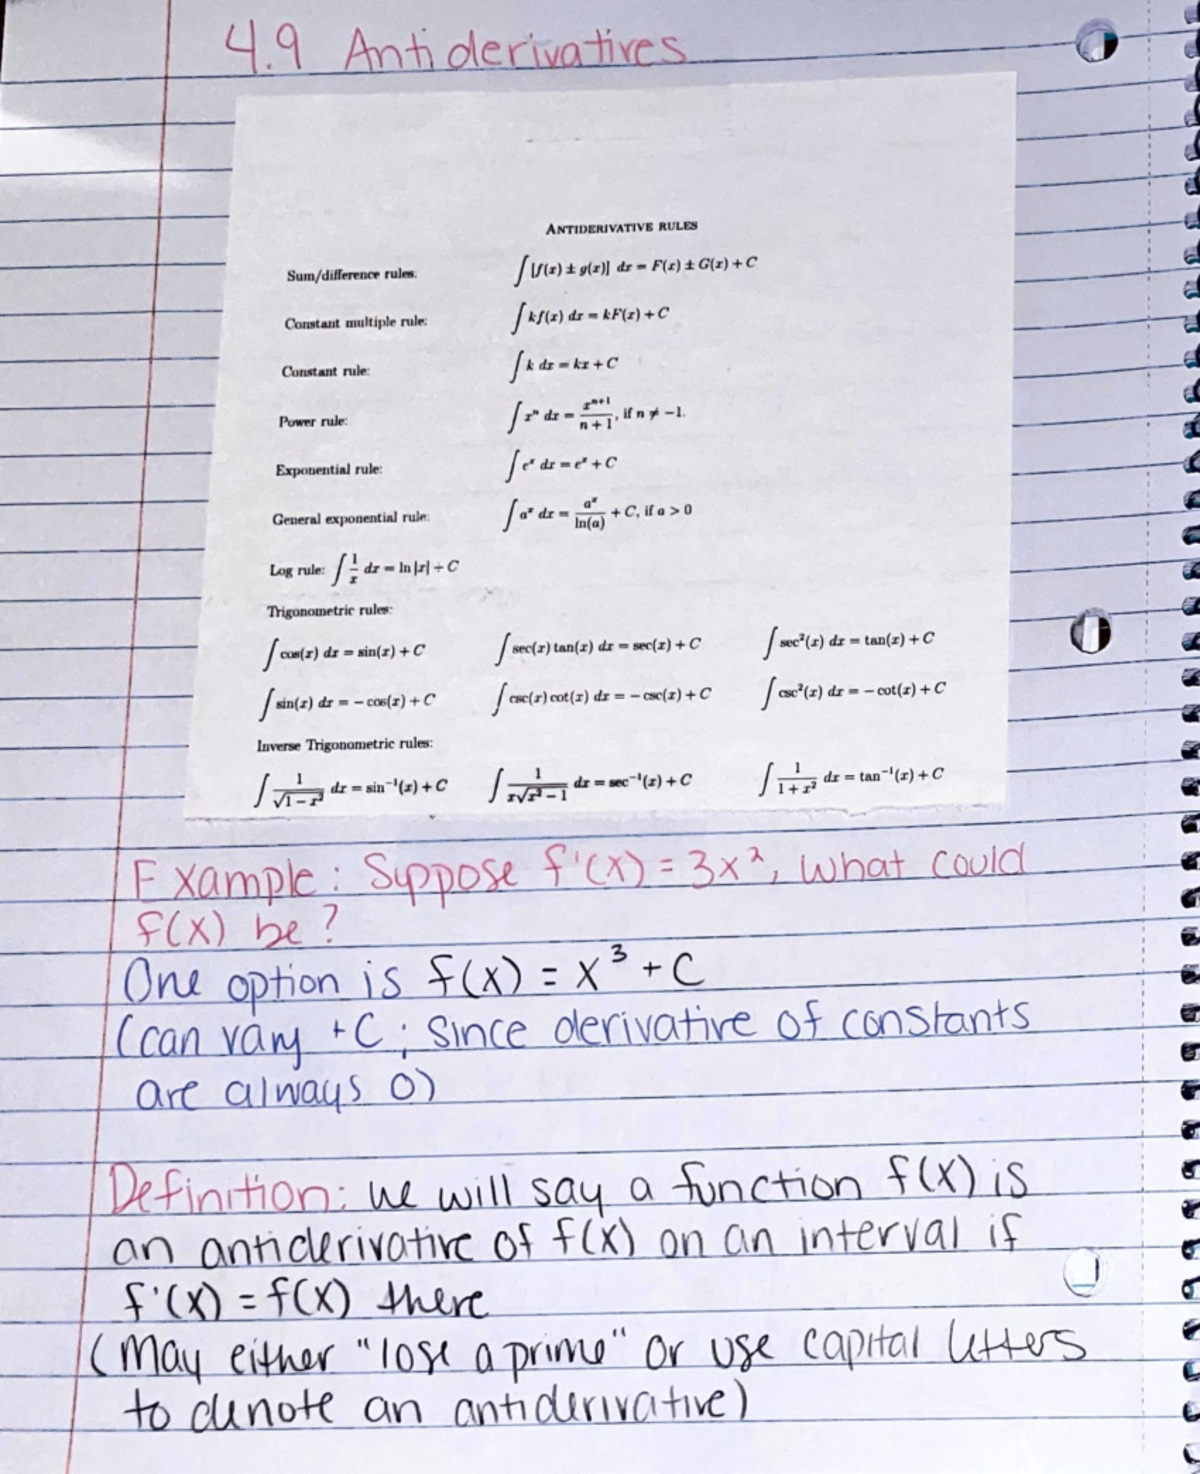 4.9 Antiderivatives
ANTIDERIVATIVE RULES
Sum/difference rules: ∫[f(x) ± g(x)] dx = F(x) ± G(x) + C
Constant multiple rule: ∫kf(x) dx = kF(x) + C
Constant rule: ∫k dx = kx + C
Power rule: ∫xⁿ dx = xⁿ⁺¹/(n + 1), if n ≠ −1.
Exponential rule: ∫eˣ dx = eˣ + C
General exponential rule: ∫aˣ dx = aˣ/ln(a) + C, if a > 0
Log rule: ∫1/x dx = ln|x| + C
Trigonometric rules:
∫cos(x) dx = sin(x) + C ∫sec(x) tan(x) dx = sec(x) + C ∫sec²(x) dx = tan(x) + C
∫sin(x) dx = − cos(x) + C ∫csc(x) cot(x) dx = − csc(x) + C ∫csc²(x) dx = − cot(x) + C
Inverse Trigonometric rules:
∫1/√(1 − x²) dx = sin⁻¹(x) + C ∫1/(x√(x² − 1)) dx = sec⁻¹(x) + C ∫1/(1 + x²) dx = tan⁻¹(x) + C
Example: Suppose f'(x) = 3x², what could
f(x) be?
One option is f(x) = x³ + C
(can vary +C; since derivative of constants
are always 0)
Definition: we will say a function f(x) is
an antiderivative of f(x) on an interval if
f'(x) = f(x) there
(May either "lose a prime" or use capital letters
to denote an antiderivative)